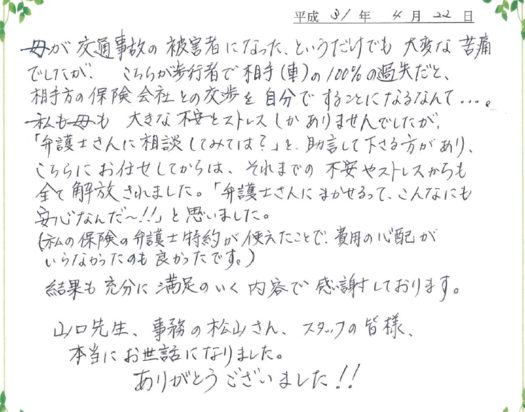 平成 31 年 4 月 22 日
母が 交通事故の 被害者になった、というだけでも 大変な 苦痛
でしたが、 こちらが歩行者で 相手(車)の100%の過失だと、
相手方の保険会社との交渉を 自分ですることになるなんて…。
私も母も 大きな 不安とストレスしかありませんでしたが、
「弁護士さんに相談してみては?」と、助言して下さる方があり、
こちらにお任せしてからは、それまでの 不安やストレスからも
全て解放されました。「弁護士さんにまかせるって、こんなにも
安心なんだ~!!」と思いました。
(私の保険の弁護士特約が使えたことで、費用の心配が
いらなかったのも良かったです。)
結果も充分に満足のいく内容で感謝しております。
山口先生、事務の松山さん、スタッフの皆様、
本当にお世話になりました。
ありがとうございました!!